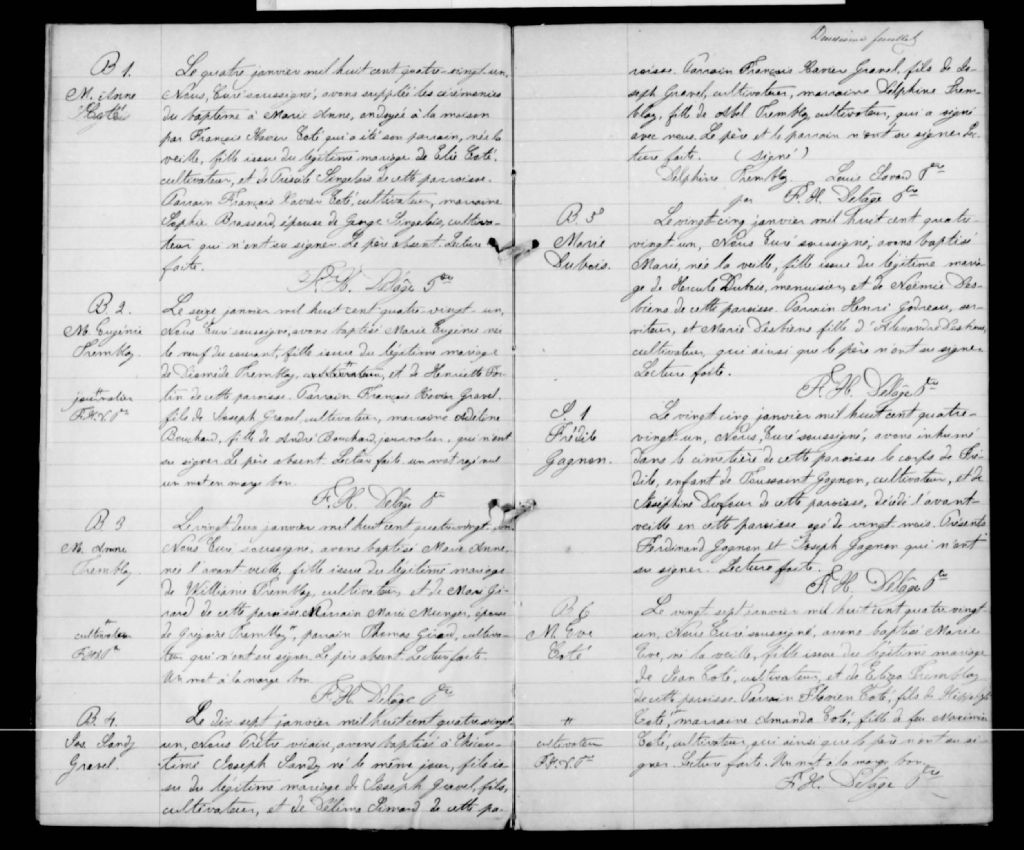 Deuxième feuillet
B 1.
M. Anne
Côté
Le quatre janvier mil huit cent quatre-vingt-un,
Nous, Curé soussigné, avons suppléé les cérémonies
du baptême à Marie Anne, ondoyée à la maison
par François Xavier Coté qui a été son parrain, née la
veille, fille issue du légitime mariage de Elie Coté,
cultivateur, et de Singelais de cette paroisse.
Parrain François Xavier Coté, cultivateur, marraine
Sophie Brassard, épouse de George Singelais, cultiva-
teur qui n'ont su signer. Le père absent. Lecture
faite.
F. H. Delâge Ptre
B 2.
M. Eugénie
Tremblay.
journalier
F.H.D. Ptre
Le seize janvier mil huit cent quatre-vingt-un,
Nous Curé soussigné, avons baptisé Marie Eugénie née
le neuf du courant, fille issue du légitime mariage
de Diomède Tremblay, cultivateur, et de Henriette For-
tin de cette paroisse. Parrain François Xavier Gravel,
fils de Joseph Gravel cultivateur, marraine Adeline
Bouchard, fille de André Bouchard, journalier, qui n'ont
su signer. Le père absent. Lecture faite un mot rayé nul
un mot en marge bon.
F. H. Delâge Ptre
B 3
M. Anne
Tremblay.
cultivateur
F.H.D. Ptre
Le vingt deux janvier mil huit cent quatre vingt-un
Nous Curé, soussigné, avons baptisé Marie Anne,
née l'avant veille, fille issue du légitime mariage
de William Tremblay, cultivateur, et de Mary Gi-
rard de cette paroisse. Marraine Marie Munger, épouse
de Grégoire Tremblay, parrain Thomas Girard, cultiva-
teur qui n'ont su signer. Le père absent. Lecture faite.
Un mot à la marge bon.
F. H. Delâge Ptre
B 4.
Jos. Sandy
Gravel.
Le dix sept janvier mil huit cent quatre vingt
un, Nous Prêtre vicaire, avons baptisé à Chicou-
timi Joseph Sandy né le même jour, fils is-
su du légitime mariage de Joseph Gravel, fils,
cultivateur, et de Délima Simard de cette pa-
roisse. Parrain François Xavier Gravel, fils de Jo-
seph Gravel, cultivateur, marraine Delphine Trem-
blay, fille de Abel Tremblay cultivateur, qui a signé
avec nous. Le père et le parrain n'ont su signer Lec-
ture faite. (Signé)
Delphine Tremblay Louis Savard Ptre
par F. H. Delâge Ptre
B. 5
Marie
Dubois.
Le vingt-cinq janvier mil huit cent quatre-
vingt-un, Nous Curé soussigné, avons baptisé
Marie, née la veille, fille issue du légitime maria-
ge de Hercule Dubois, menuisier, et de Noëmie Des-
biens de cette paroisse. Parrain Henri Godreau, ser-
viteur, et Marie Desbiens fille d'Alexandre Desbiens,
cultivateur, qui ainsi que le père n'ont su signer
Lecture faite.
F. H. Delâge Ptre
S. 1
Frédite
Gagnon.
Le vingt cinq janvier mil huit cent quatre-
vingt-un, Nous, Curé soussigné, avons inhumé
dans le cimetière de cette paroisse le corps de Fré-
dite, enfant de Toussaint Gagnon, cultivateur, et de
Joséphine Dufour de cette paroisse, décédé l'avant-
veille en cette paroisse agé de vingt mois. Présents
Ferdinand Gagnon et Joseph Gagnon qui n'ont
su signer. Lecture faite.
F. H. Delâge Ptre
B 6
M. Eve
Coté
cultivateur
F.H.D. Ptre
Le vingt sept janvier mil huit cent quatre vingt
un, Nous Curé soussigné, avons baptisé Marie
Eve, née la veille, fille issue du légitime mariage
de Jean Coté, cultivateur, et de Eliza Tremblay
de cette paroisse. Parrain Florien Coté, fils de
Coté, marraine Amanda Coté, fille de feu
Coté, cultivateur, qui ainsi que le père n'ont su si-
gner. Lecture faite. Un mot à la marge bon.
F. H. Delâge Ptre